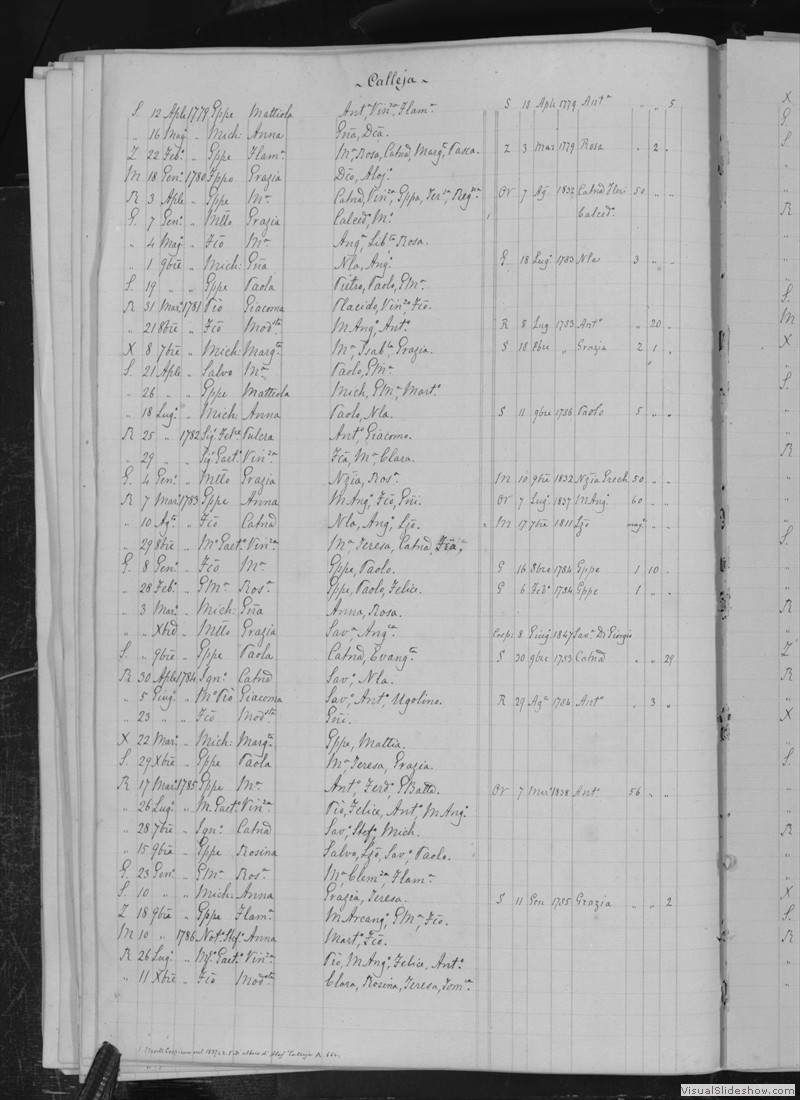 ~ Calleja ~
S. 12 Aple 1779 Gppe Mattiola Ant.a Vin.za Flam.a S 18 Aple 1779 Ant.a " " 5
" 16 Mag.o " Mich: Anna Gña, Dca.
Z 22 Feb.o " Gppe Flam.a M.a Rosa, Catnd, Marg.a Pasca. Z 3 Mar 1779 Rosa " 2 "
M 18 Gen.o 1780 Gppe Grazia Dco, Aloj.
R 3 Aple " Gppe M.a Catnd, Vin.za Gppa, Ter.sa Reg.na Or 7 Ag. 1832 Catnd 50 " "
G. 7 Gen.o " Mttio Grazia Calced.o M.o Calced.o
" 4 Mag.o " Fco M.a Ang.a Lib.ta Rosa.
" 1 9bre " Mich: Gña Nla, Ang.o G 18 Lug.o 1783 Nla 3 " "
S. 19 " " Gppe Paola Pietro, Paolo, GM.a
R 31 Mar.o 1781 Pio Giacoma Placido, Vin.zo Fco.
" 21 8bre " Fco Mod.sta M Ang.o Ant.o R 8 Lug 1783 Ant.o " 20 "
X 8 7bre " Mich: Marg.ta M.a Isab.la Grazia. S 18 8bre " Grazia 2 1 "
S. 21 Aple " Salvo M.a Paolo, GM.a
" 26 " " Gppe Mattiola Mich, GM.a Mart.o
" 18 Lug.o " Mich: Anna Paolo, Nla. S 11 9bre 1786 Paolo 5 " "
R 25 " 1782 Sig. Felice Pulcra Ant.o Giacomo.
" 29 " " Sig. Gaet.o Vin.za Fco, M.a Clara.
G. 4 Gen.o " Mttio Grazia Nzia, Ros.a M 10 9bre 1832 Nzia 50 " "
R 7 Mar 1783 Gppe Anna M Ang.o Fco, Gñi. Or 7 Lug.o 1837 M Ang.o 60 " "
" 10 Ag.o " Fco Catnd Nla, Ang.o Lzo. M 17 7bre 1811 Lzo mag.o " "
" 29 8bre " M.o Gaet.o Vin.za M.a Teresa, Catnd, Fca.
G. 8 Gen.o " Fco M.a Gppe, Paolo. G 16 8bre 1784 Gppe 1 10 "
" 28 Feb.o " GM.a Ros.a Gppe, Paolo, Felice. G 6 1784 Gppe 1 " "
" 3 Mar.o " Mich: Gña Anna, Rosa.
" " Xbre " Mttio Grazia Sav.a Ang.ca 8 Giug.o 1847 Sav.a Di Giorgio
S. " 9bre " Gppe Paola Catnd, Evang.ta S 30 9bre 1783 Catnd " " 29
R 30 Aple 1784 Ign.o Catnd Sav.o Nla.
" 5 Giug.o " M.o Pio Giacoma Sav.o Ant.o Ugolino. R 29 Ag.o 1784 Ant.o " 3 "
" 23 " " Fco Mod.sta Gñi.
X 22 Mar.o " Mich: Marg.ta Gppe, Mattia.
S. 29 Xbre " Gppe Paola M.a Teresa, Grazia.
R 17 Mar.o 1785 Gppe M.a Ant.o Ferd.o G Batta. Or 7 Mar.o 1838 Ant.o 56 " "
" 26 Lug.o " M. Gaet.o Vin.za Pio, Felice, Ant.o M Ang.o
" 28 7bre " Ign.o Catnd Sav.o Stef.o Mich.
" 15 9bre " Gppe Rosina Salvo, Lzo, Sav.o Paolo.
G. 23 Gen.o " GM.a Ros.a M.a Clem.za Flam.a
S. 10 " " Mich: Anna Grazia, Teresa. S 11 Gen 1785 Grazia " " 2
Z 18 9bre " Gppe Flam.a M Arcang.o GM.a Fco.
M 10 " 1786 Not.o Stef.o Anna Mart.o Fco.
R 26 Lug.o " M.o Gaet.o Vin.za Pio, M Ang.o Felice, Ant.o
" 11 Xbre " Fco Mod.sta Clara, Rosina, Teresa, Tom.sa
VisualSlideshow.com